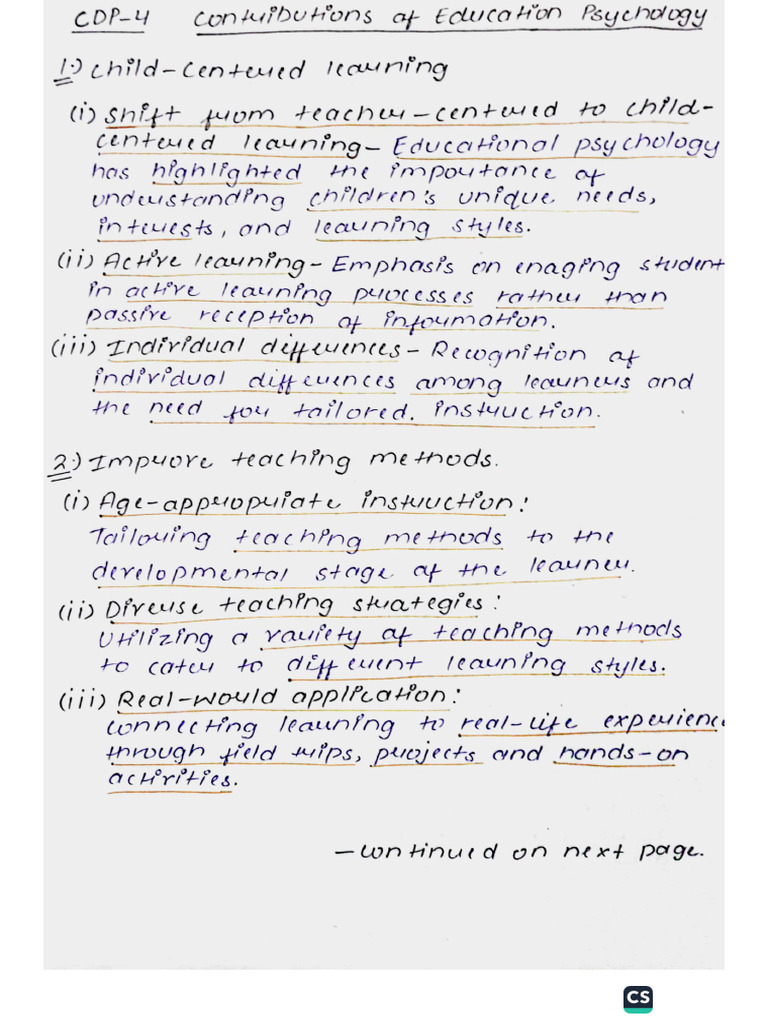 CDP-4 Contributions of Education Psychology
1.) Child-centered learning
(i) Shift from teacher-centered to child-
centered learning- Educational psychology
has highlighted the importance of
understanding children's unique needs,
interests, and learning styles.
(ii) Active learning- Emphasis on enaging student
in active learning processes rather than
passive reception of information.
(iii) Individual differences- Recognition of
individual differences among learners and
the need for tailored. instruction.
2.) Improve teaching methods.
(i) Age-appropriate instruction:
Tailoring teaching methods to the
developmental stage of the learner.
(ii) Diverse teaching strategies:
Utilizing a variety of teaching methods
to cater to different learning styles.
(iii) Real-world application:
connecting learning to real-life experienc
through field trips, projects and hands-on
activities.
-continued on next page.
CS